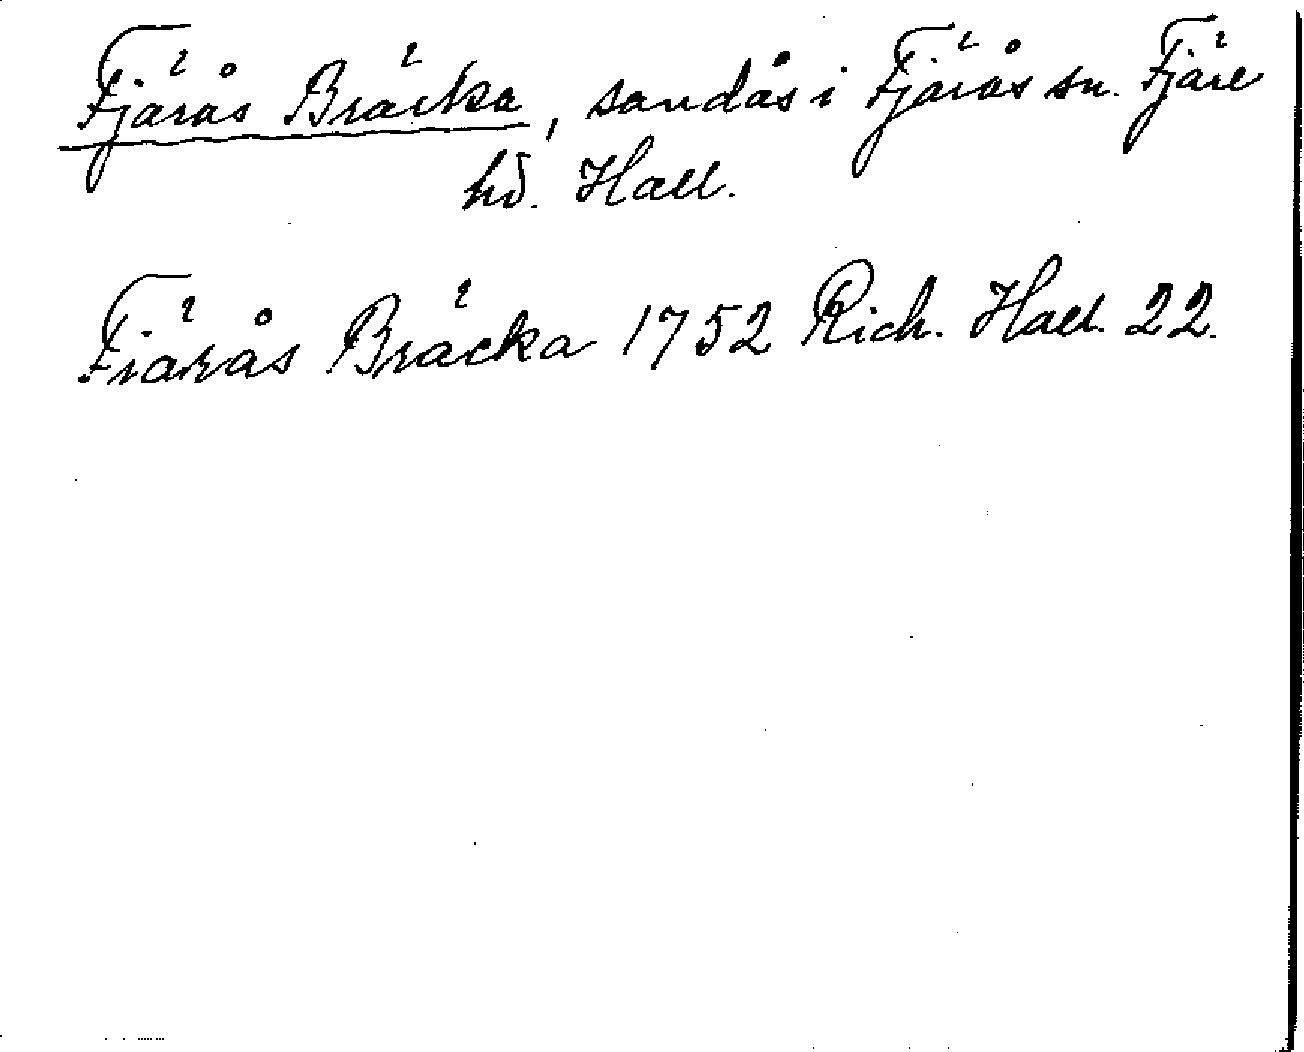 Fjärås Bräcka, sandås i Fjärås sn. Fjäre
hd. Hall.
Fiärås Bräcka 1752 Rich. Hall. 22.